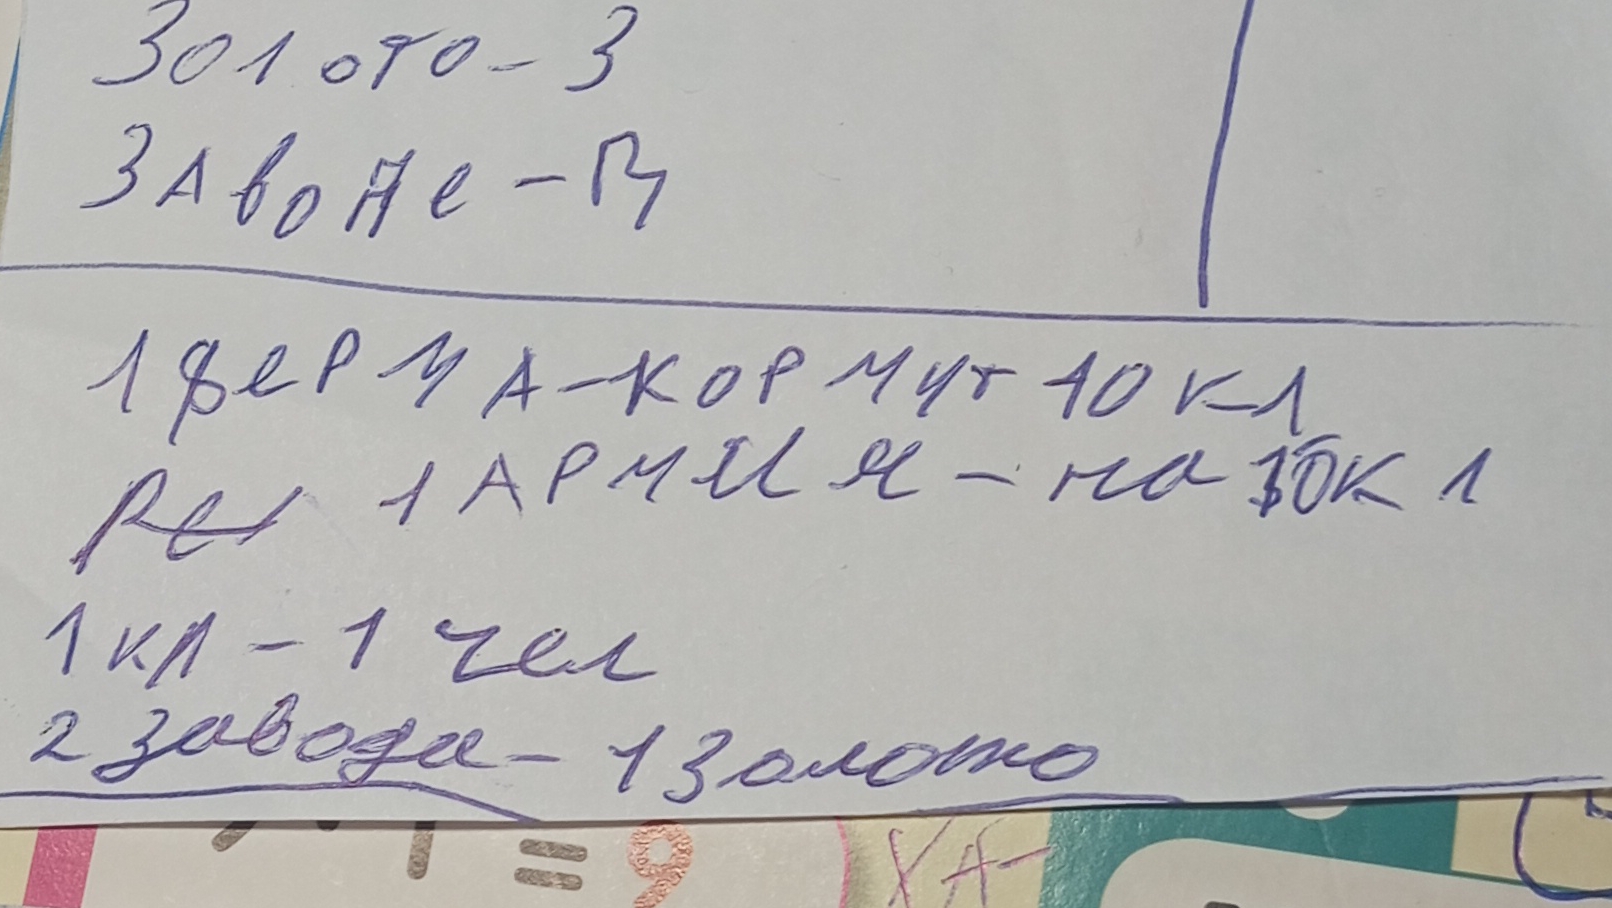 Золото - З
ЗАВОДе - П
1 феРМА - КОРМЯТ 10 кл
1 АРМИЯ - на 10 к л
1 кл - 1 чел
2 завода - 1 золото
= 9
ХА-